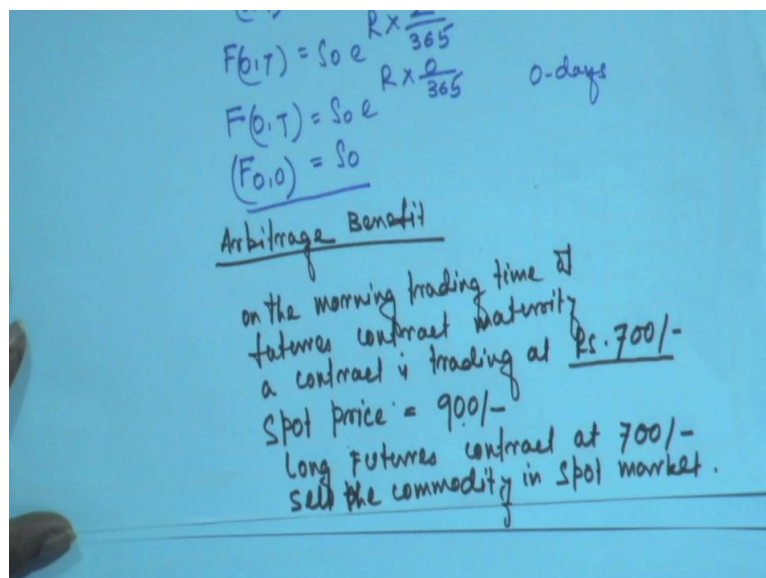 R x 365
F(0,T) = S0 e
R x 0/365 0-days
F(0,T) = S0 e
(F0,0) = S0
Arbitrage Benefit
on the morning trading time of
futures contract maturity
a contract is trading at Rs. 700/-
Spot price = 900/-
Long Futures contract at 700/-
sell the commodity in spot market.